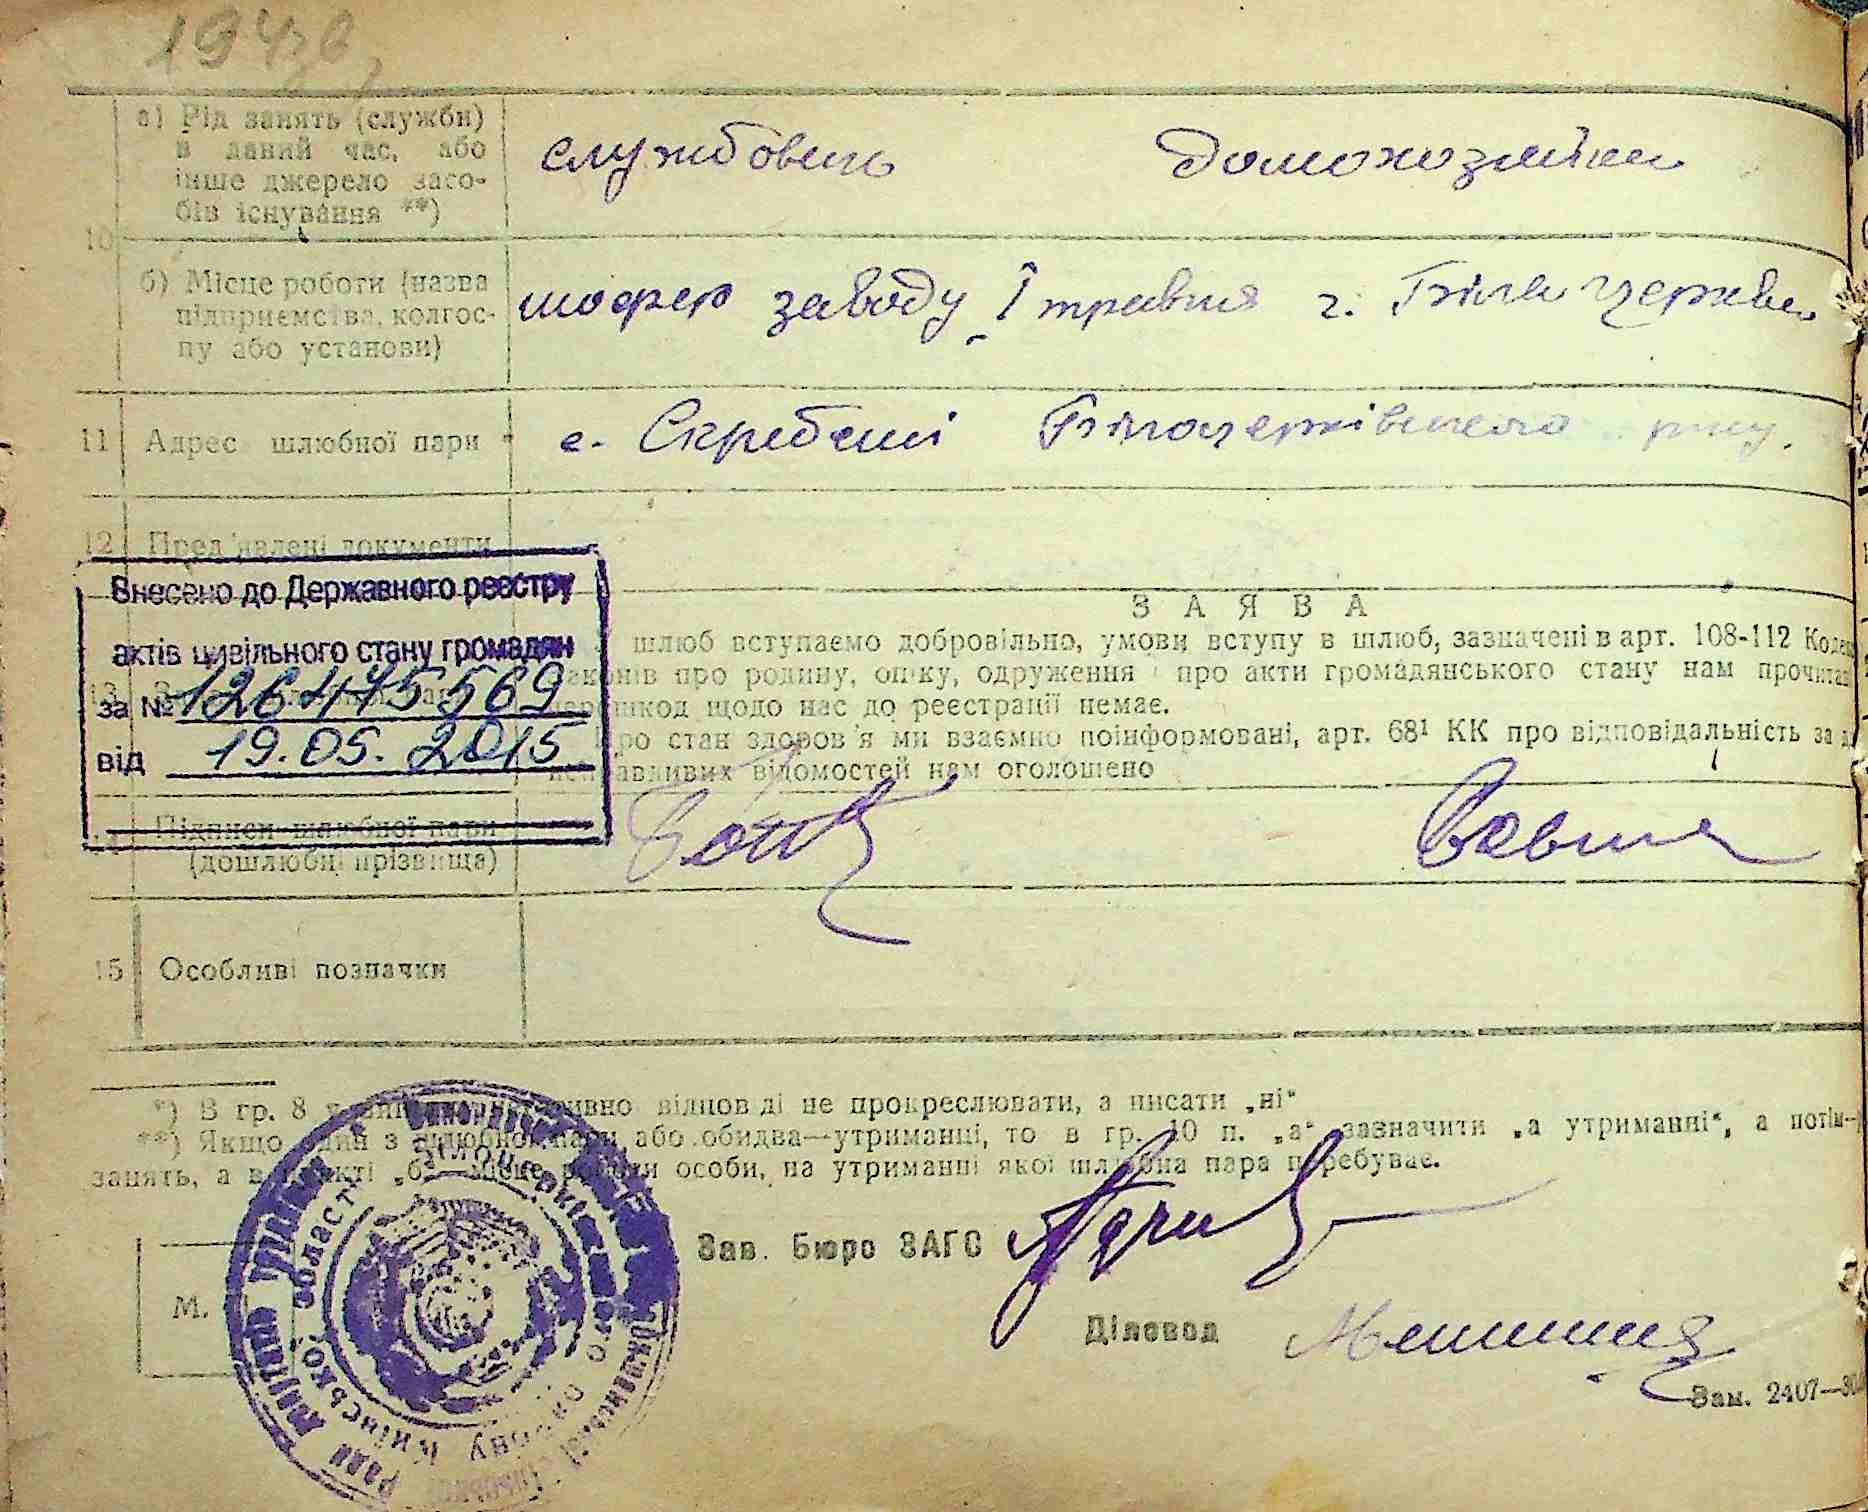 а) Рід занять (служби)
в даний час, або
інше джерело засо-
бів існування **)
службовець
домохозяйка
10
б) Місце роботи (назва
підприємства, колгос-
пу або установи)
шофер заводу І травня г. Біла церква
11 Адрес шлюбної пари
с. Скребеші Білоцерківського р-ну.
12 Пред'явлені документи
Внесено до Державного реєстру
актів цивільного стану громадян
за № 126475569
від 19.05.2015
ЗАЯВА
шлюб вступаємо добровільно, умови вступу в шлюб, зазначені в арт. 108-112
про родину, опіку, одруження і про акти громадянського стану нам
щодо нас до реєстрації немає.
Про стан здоров'я ми взаємно поінформовані, арт. 68¹ КК про відповідальність за
відомостей нам оголошено
Підписи шлюбної пари
(дошлюбні прізвища)
15 Особливі позначки
*) В гр. 8 відповіді не прокреслювати, а писати „ні“
**) Якщо один з шлюбної пари або обидва—утриманці, то в гр. 10 п. „а“ зазначити „а утриманні“, а потім—
занять, а в пункті „б“ місце роботи особи, на утриманні якої шлюбна пара перебуває.
Зав. Бюро ЗАГС
М.
Діловод
Зам. 2407—
Білоцерківського району Київської області